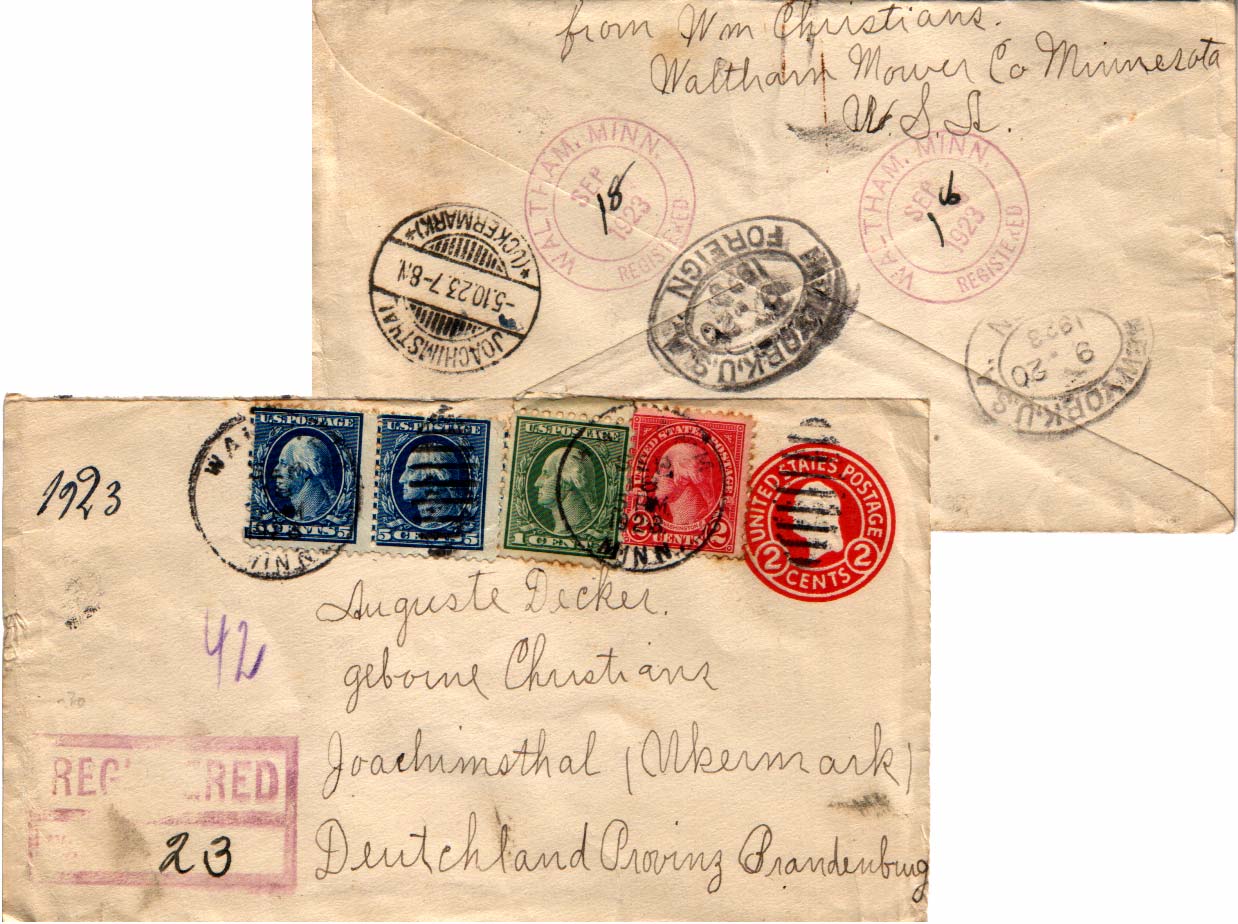 from Wm Christians.
Waltham Mower Co Minnesota
U.S.A.
WALTHAM, MINN.
SEP
18
1923
REGISTERED
WALTHAM, MINN.
SEP
16
1923
REGISTERED
*(UCKERMARK)*
-5.10.23.7-8.N.
JOACHIMSTHAL
YORK.U.S.A.
FOREIGN
YORK.U.S.
9-20
1923
1923
U.S. POSTAGE
5 CENTS 5
U.S. POSTAGE
5 CENTS 5
U.S. POSTAGE
1 CENT
UNITED STATES POSTAGE
2 CENTS 2
UNITED STATES POSTAGE
2 CENTS 2
MINN
1923
MINN
42
Auguste Decker.
geborne Christians
Joachimsthal (Ukermark)
Deutchland Provinz Brandenburg
REGISTERED
23